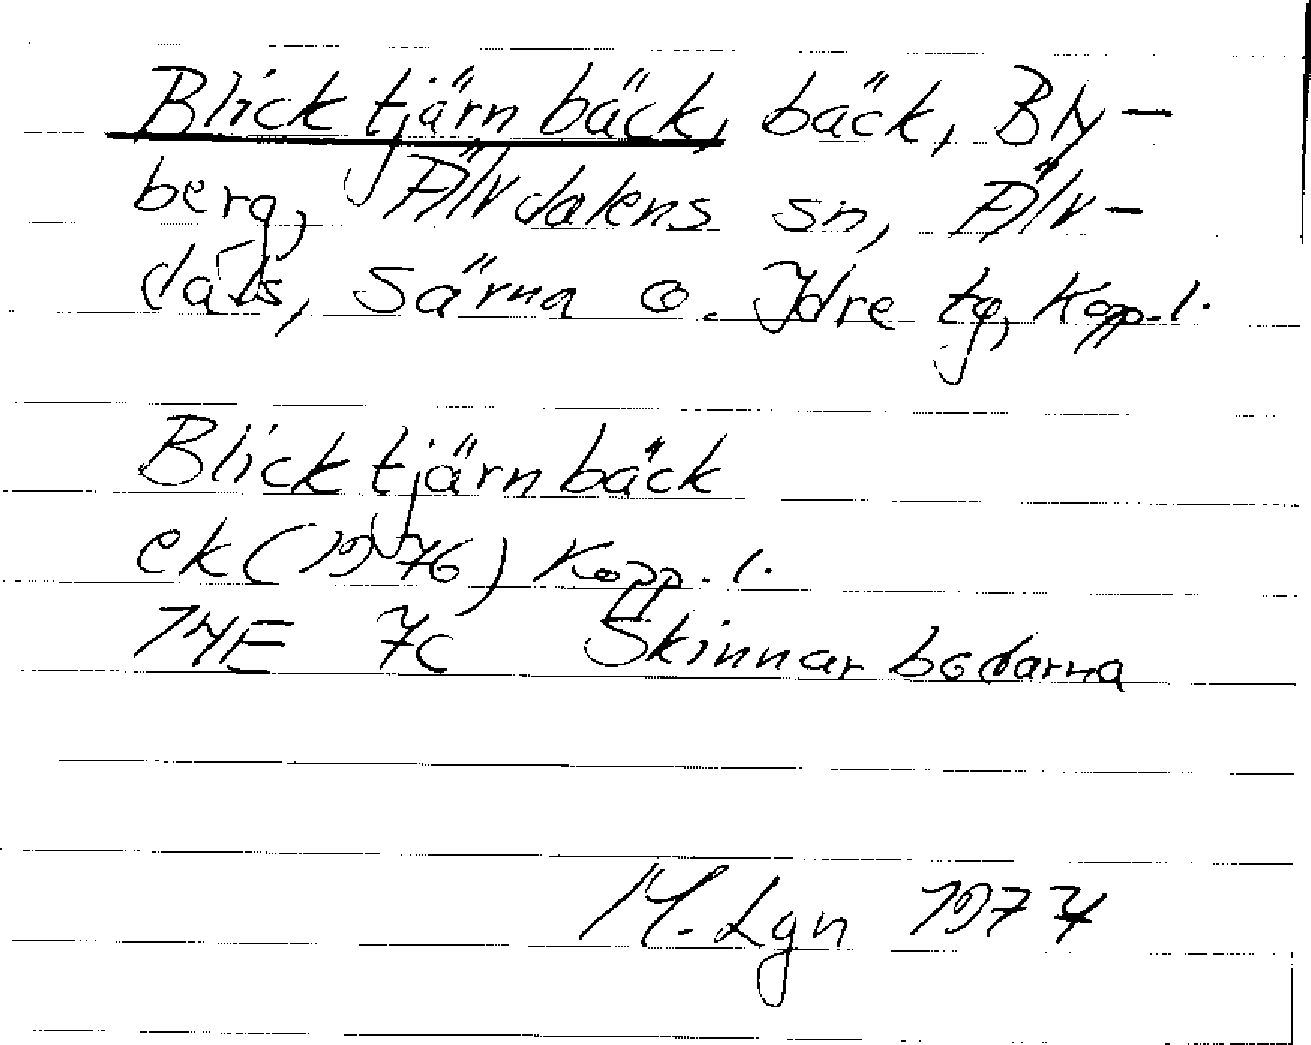 Blicktjärnbäck, bäck, Bly-
berg, Älvdalens sn, Älv-
dals, Särna o. Idre tg, Kopp.l.
Blicktjärnbäck
ek (1976) Kopp.l.
14E 7c Skinnarbodarna
M. Lgn 1977